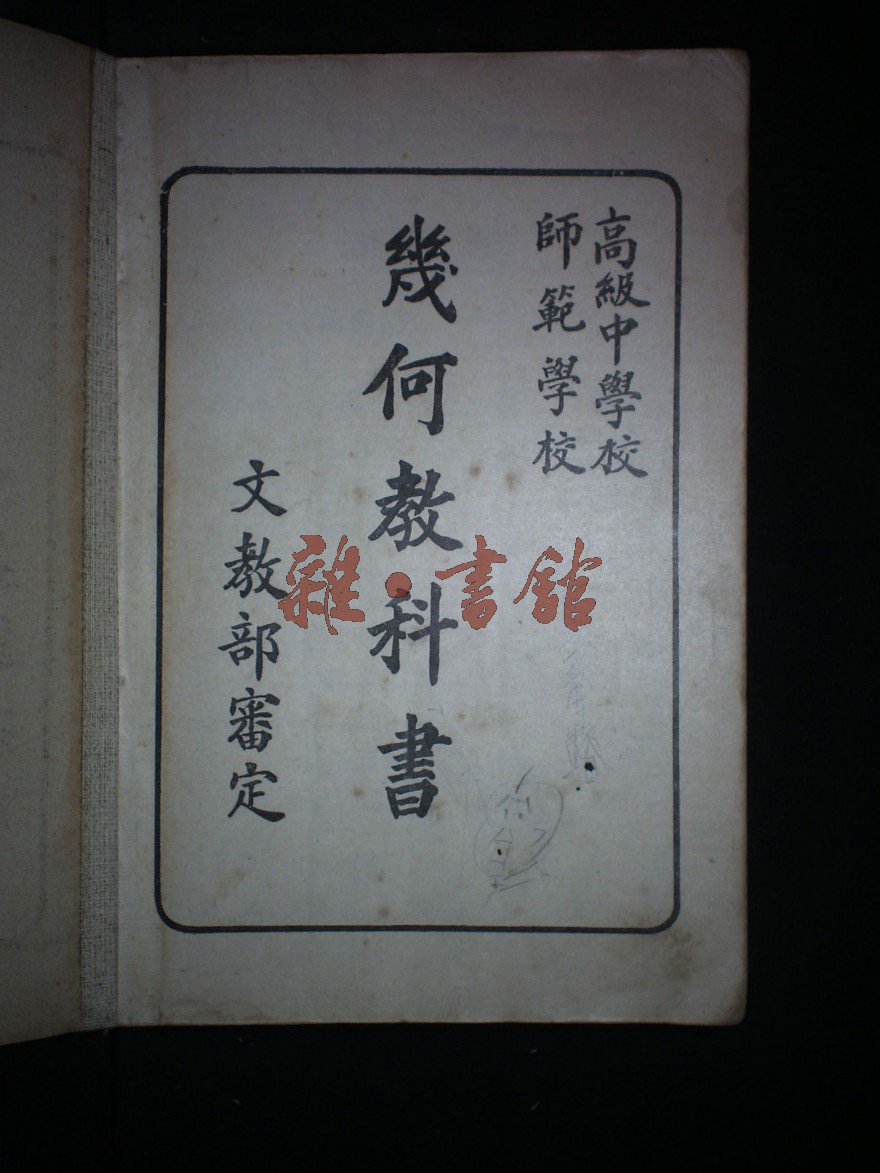 高級中學校
師範學校
幾何教科書
文教部審定
雜·書館